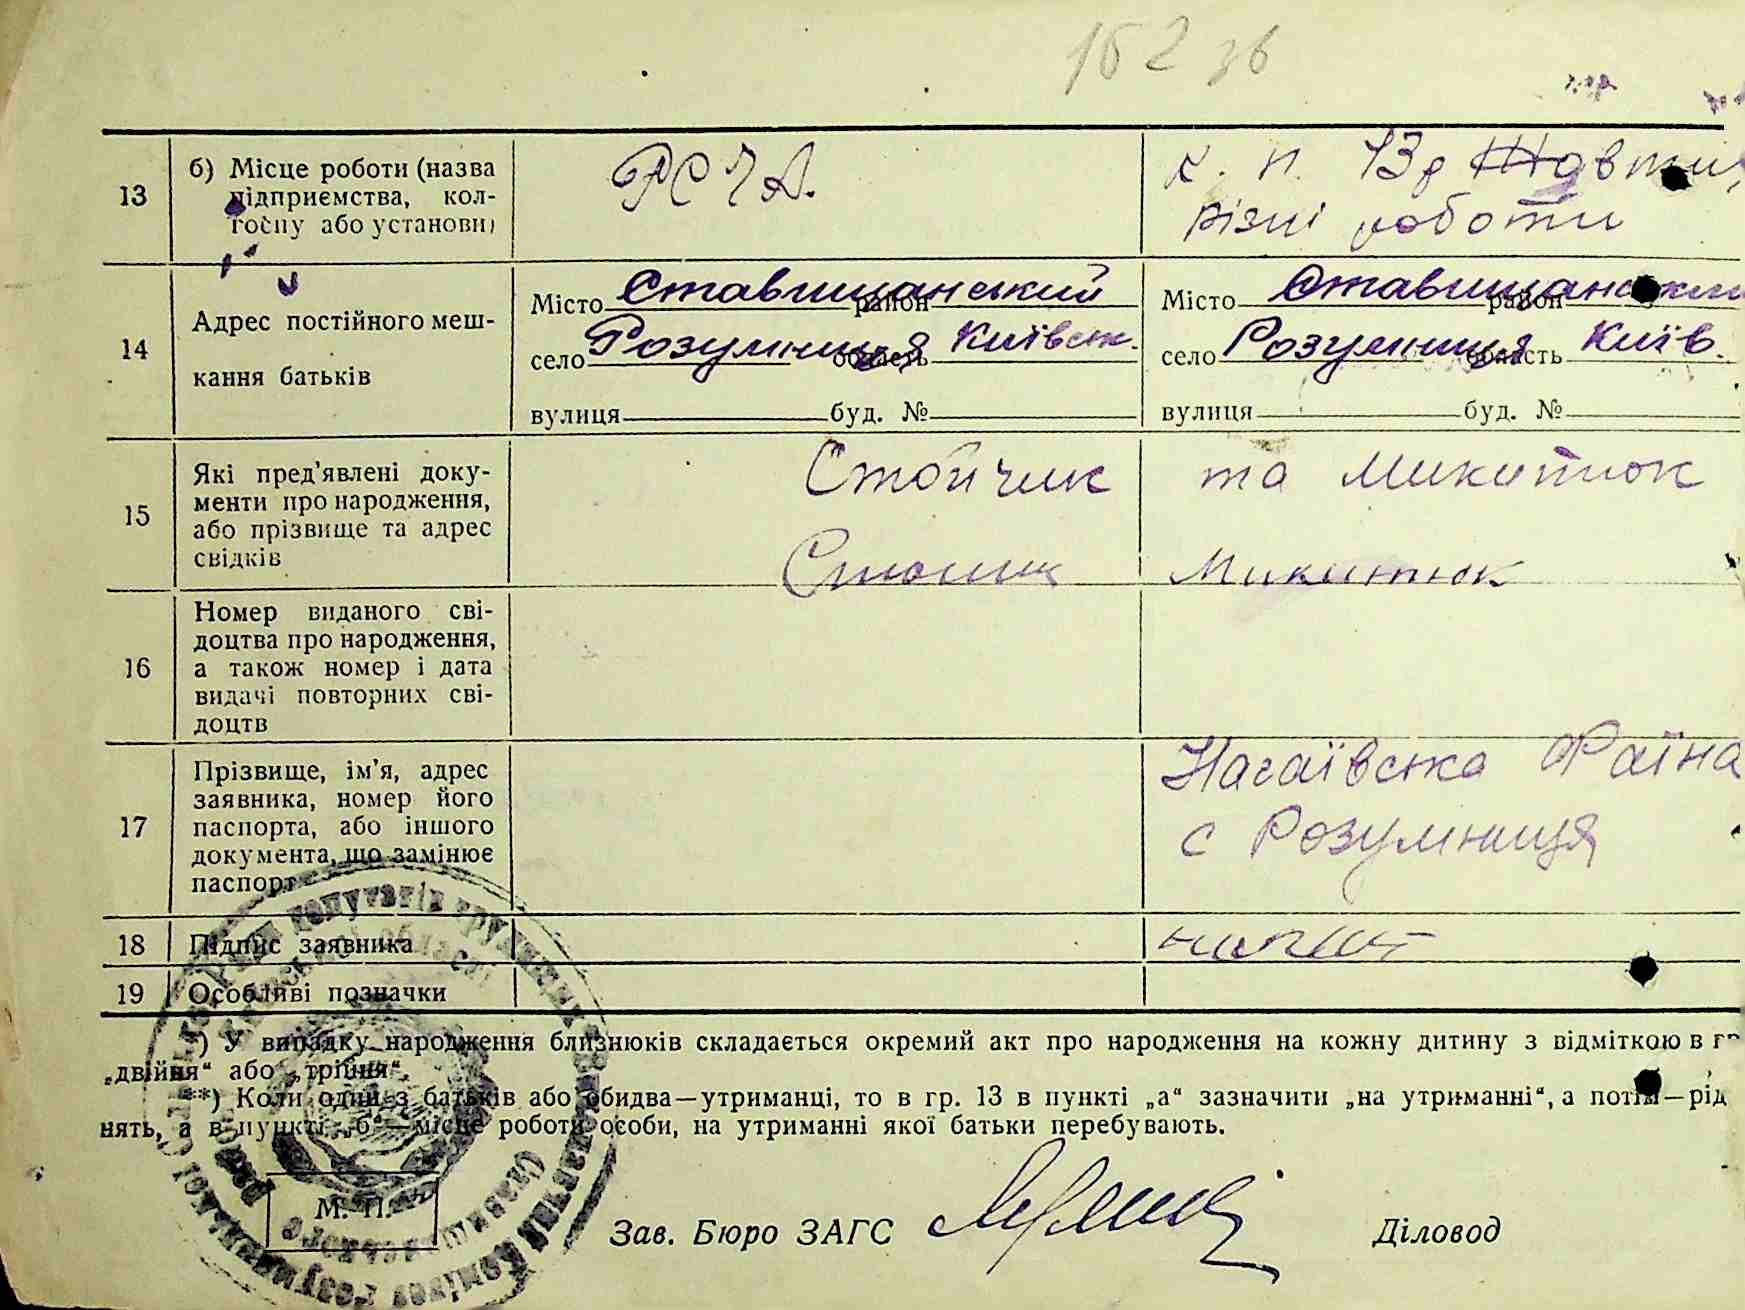 162 зв
13 б) Місце роботи (назва підприємства, колгоспу або установи)
РСЧА.
к. п. 13 р Жовтн
різні роботи
14 Адрес постійного мешкання батьків
Місто Ставищанський район
село Розумниця область Київськ.
вулиця буд. №
Місто Ставищанський район
село Розумниця область Київ.
вулиця буд. №
15 Які пред'явлені документи про народження, або прізвище та адрес свідків
Стойчик та Микитюк
Микитюк
16 Номер виданого свідоцтва про народження, а також номер і дата видачі повторних свідоцтв
17 Прізвище, ім'я, адрес заявника, номер його паспорта, або іншого документа, що замінює паспорт
Нагаївська Фаїна
с Розумниця
18 Підпис заявника
19 Особливі позначки
*) У випадку народження близнюків складається окремий акт про народження на кожну дитину з відміткою в г
„двійня“ або „трійня“.
**) Коли один з батьків або обидва—утриманці, то в гр. 13 в пункті „а“ зазначити „на утриманні“, а потім—рід
нять, а в пункті „б“—місце роботи особи, на утриманні якої батьки перебувають.
М. П.
Зав. Бюро ЗАГС
Діловод